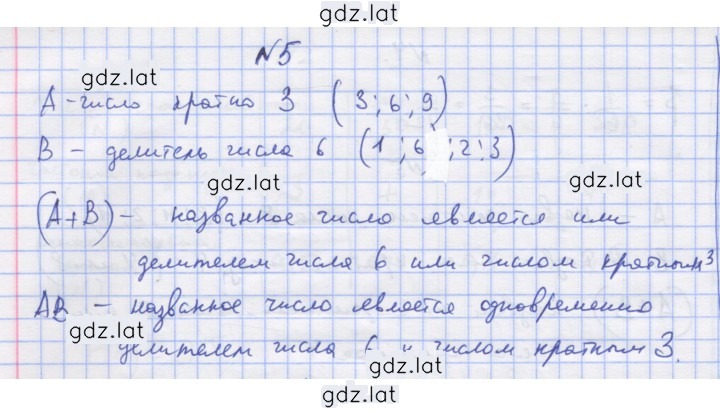 gdz.lat
№5
gdz.lat
A - число кратно 3 (3; 6; 9)
B - делитель числа 6 (1; 6; 2; 3)
gdz.lat
gdz.lat
(A+B) - названное число является или
делителем числа 6 или числом кратным 3
AB - названное число является одновременно
gdz.lat
делителем числа 6 и числом кратным 3.
gdz.lat
gdz.lat